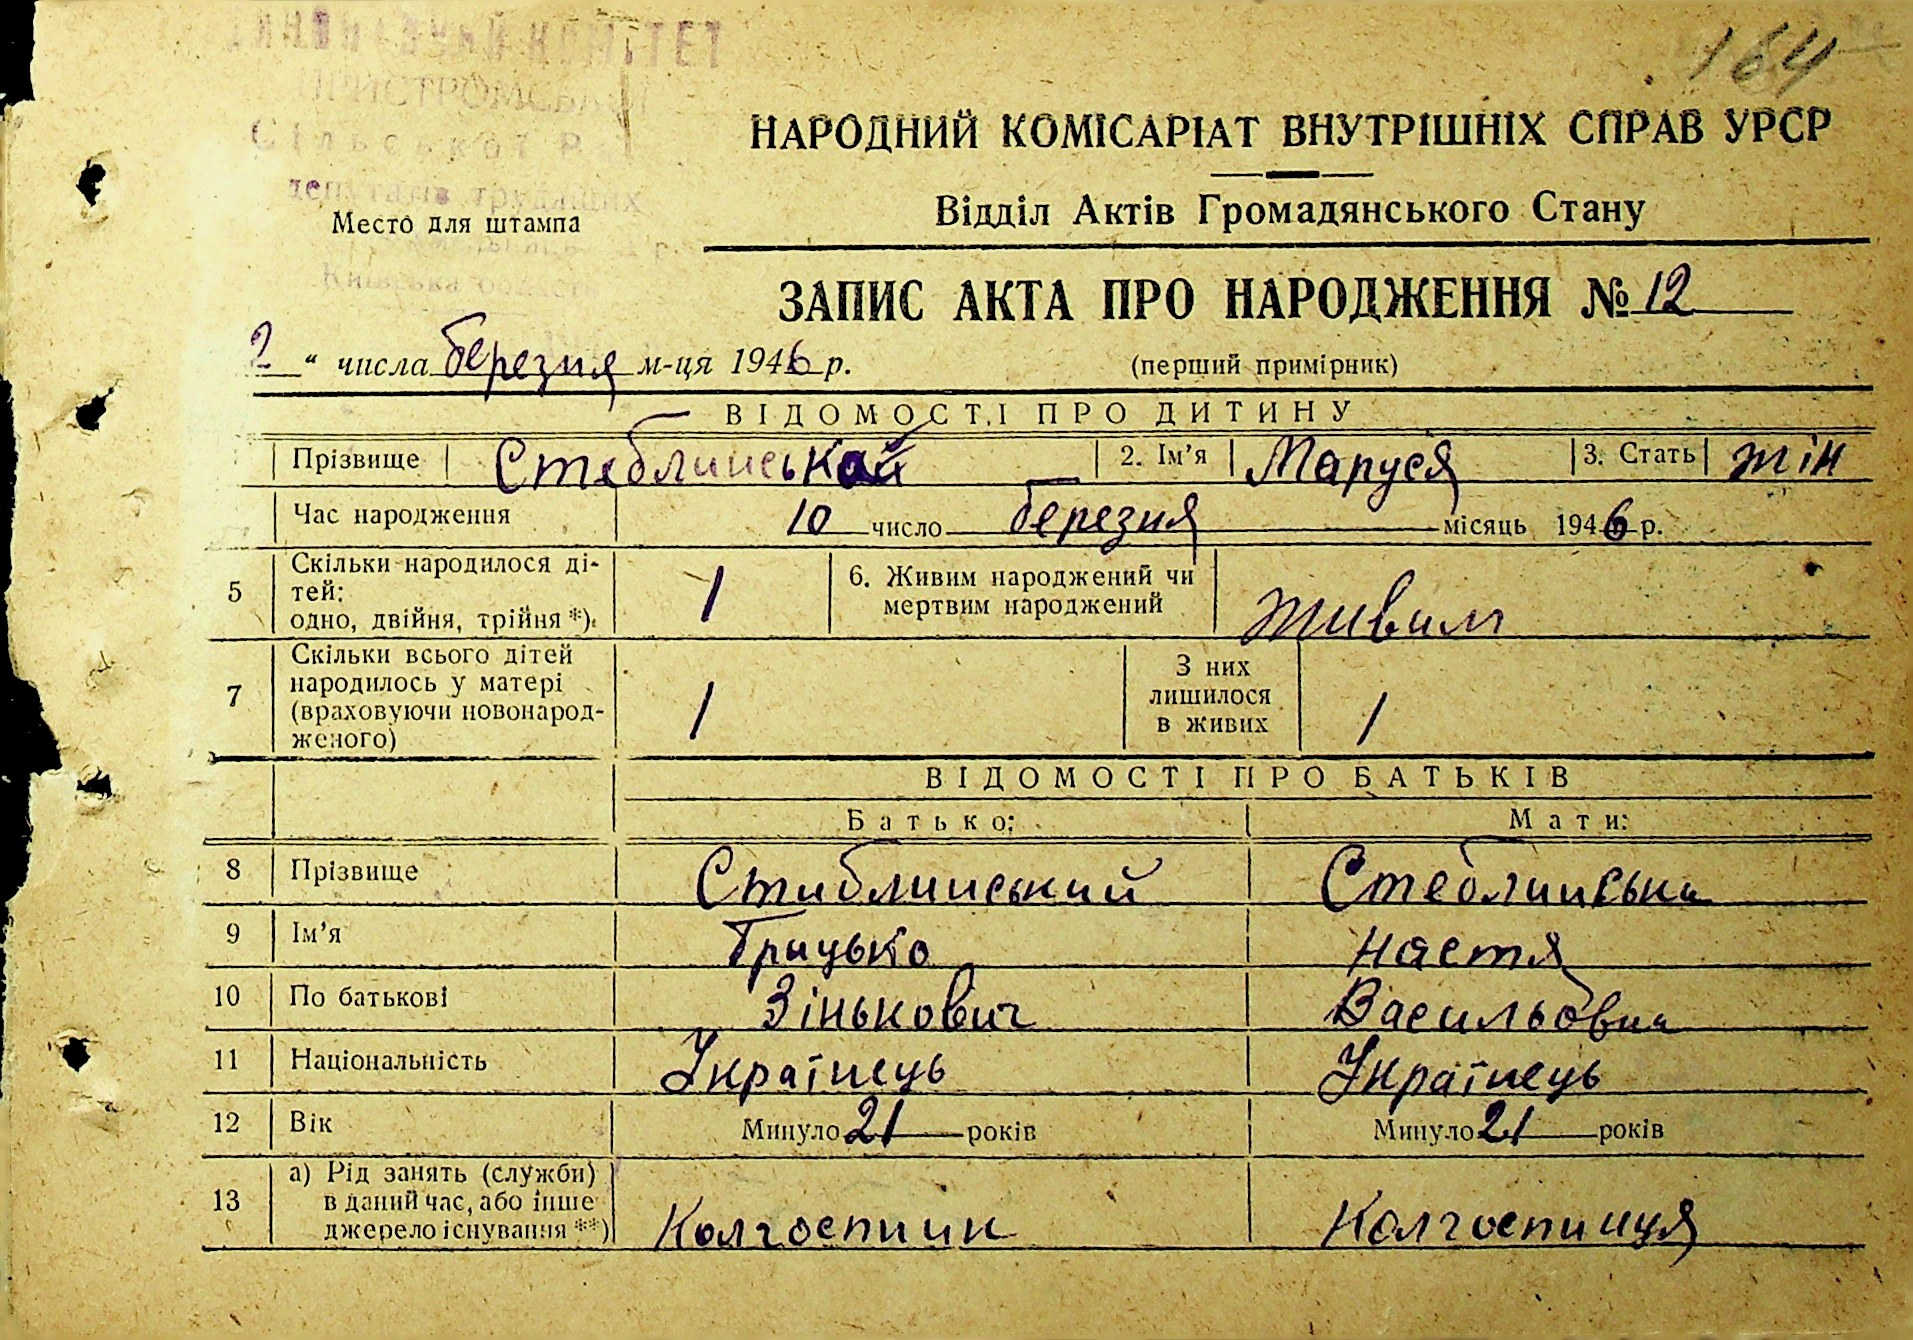 164
КОМІТЕТ
ПРИСТРОМСЬКОЇ
Сільської Ра
депутатів трудящих
Київська область
Место для штампа
НАРОДНИЙ КОМІСАРІАТ ВНУТРІШНІХ СПРАВ УРСР
Відділ Актів Громадянського Стану
ЗАПИС АКТА ПРО НАРОДЖЕННЯ № 12
2 “ числа березня м-ця 1946 р. (перший примірник)
ВІДОМОСТІ ПРО ДИТИНУ
Прізвище 2. Ім’я Маруся 3. Стать жін
Час народження 10 число березня місяць 1946 р.
5 Скільки народилося ді-
тей:
одно, двійня, трійня *). 1 6. Живим народжений чи
мертвим народжений живим
7 Скільки всього дітей
народилось у матері
(враховуючи новонарод-
женого) 1 З них
лишилося
в живих 1
ВІДОМОСТІ ПРО БАТЬКІВ
Батько: Мати:
8 Прізвище Стиблинський Стеблинська
9 Ім’я Грицько Настя
10 По батькові Зінькович Васильовна
11 Національність Українець Українець
12 Вік Минуло 21 років Минуло 21 років
13 а) Рід занять (служби)
в даний час, або інше
джерело існування **) Колгоспник Колгоспниця